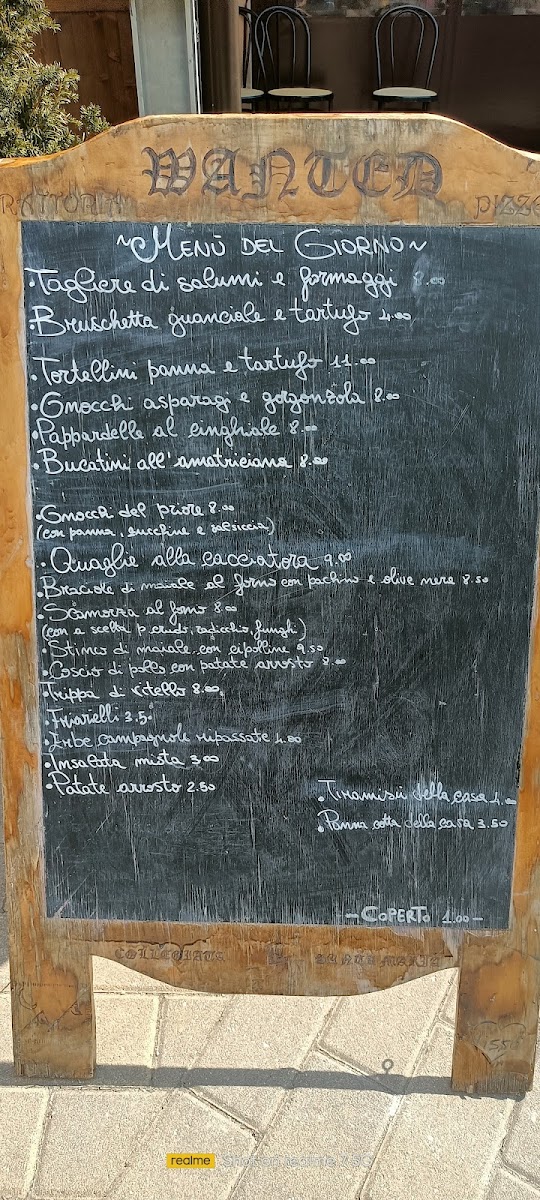 WANTED
RATTORIA PIZZE
~Menù del Giorno~
•Tagliere di salumi e formaggi 8.00
•Bruschetta guanciale e tartufo 4.00
•Tortellini panna e tartufo 11.00
•Gnocchi asparagi e gorgonzola 8.00
•Pappardelle al cinghiale 8.00
•Bucatini all'amatriciana 8.00
•Gnocchi del priore 8.00
(con panna, zucchine e salsiccia)
•Quaglie alla cacciatora 9.00
•Braciole di maiale al forno con pachino e olive nere 8.50
•Scamorza al forno 8.00
(con a scelta p. crudo, radicchio, funghi)
•Stinco di maiale con cipolline 9.50
•Coscio di pollo con patate arrosto 8.00
•Trippa di vitello 8.00
•Friarelli 3.5
•Erbe campagnole ripassate 4.00
•Insalata mista 3.00
•Patate arrosto 2.50
•Tiramisù della casa 4.00
•Panna cotta della casa 3.50
-Coperto 1.00-
realme